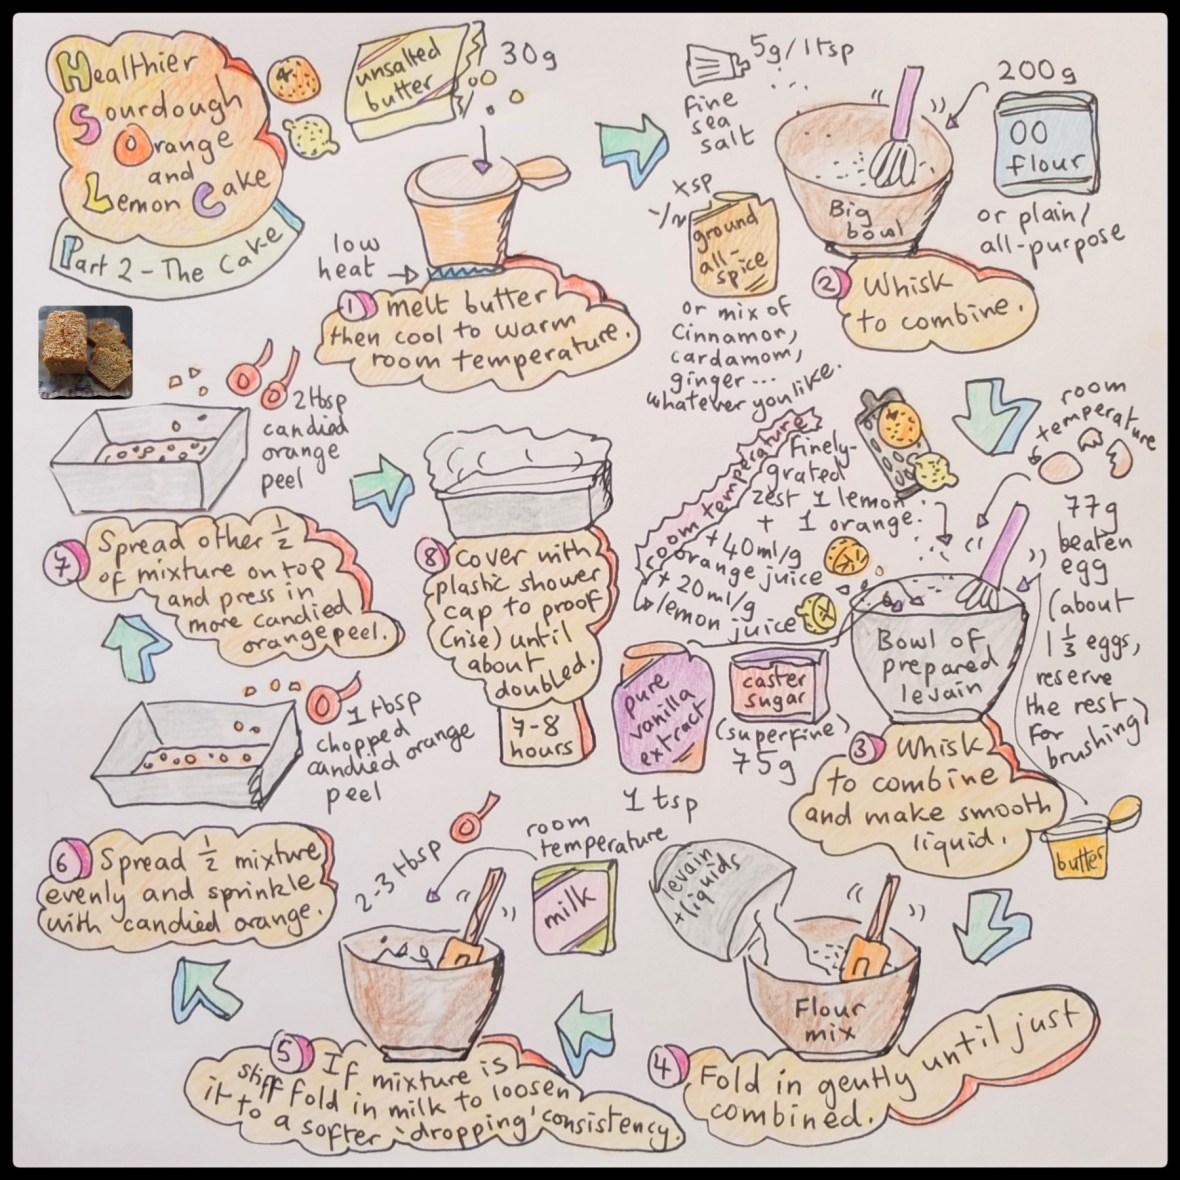 Healthier
Sourdough
Orange
and
Lemon Cake
Part 2 - The Cake
unsalted
butter
30g
low
heat
1 melt butter
then cool to warm
room temperature.
5g/1tsp
fine
sea
salt
200g
00
flour
or plain/
all-purpose
Big
bowl
ground
all-
spice
or mix of
cinnamon,
cardamom,
ginger...
whatever you like.
2 Whisk
to combine.
room
temperature
room temperature
finely-
grated
zest 1 lemon
+ 1 orange.
+ 40ml/g
orange juice
+ 20ml/g
lemon juice
77g
beaten
egg
(about
1 1/3 eggs,
reserve
the rest
for
brushing)
butter
pure
vanilla
extract
1 tsp
caster
sugar
(superfine)
75g
Bowl of
prepared
levain
3 Whisk
to combine
and make smooth
liquid.
levain
+ liquids
Flour
mix
4 Fold in gently until just
combined.
2-3 tbsp
room
temperature
milk
5 If mixture is
stiff fold in milk to loosen
it to a softer 'dropping' consistency.
1 tbsp
chopped
candied orange
peel
6 Spread 1/2 mixture
evenly and sprinkle
with candied orange.
2 tbsp
candied
orange
peel
7 Spread other 1/2
of mixture on top
and press in
more candied
orange peel.
8 Cover with
plastic shower
cap to proof
(rise) until
about
doubled.
7-8
hours